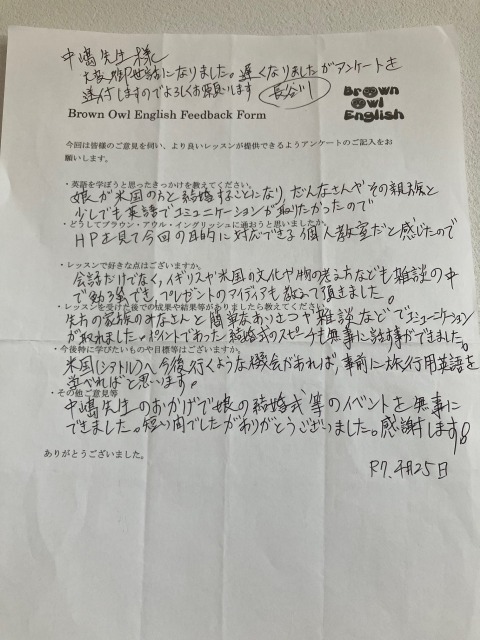 中嶋先生様
大変御世話になりました。遅くなりましたがアンケートを
送付しますのでよろしくお願いします 長谷川
Brown Owl English
Brown Owl English Feedback Form
今回は皆様のご意見を伺い、より良いレッスンが提供できるようアンケートのご記入をお
願いします。
・英語を学ぼうと思ったきっかけを教えてください。
娘が米国の方と結婚することになり、だんなさんやその親族と
少しでも英語でコミュニケーションが取りたかったので
・どうしてブラウン・アウル・イングリッシュに通おうと思いましたか。
HPを見て今回の目的に対応できる個人教室だと感じたので
・レッスンで好きな点はございますか。
会話だけでなく、イギリスや米国の文化や物の考え方なども雑談の中
で勉強でき、プレゼントのアイディアも教えて頂きました。
・レッスンを受けた後での成果や結果等がありましたら教えてください。
先方の家族のみなさんと簡単なあいさつや雑談などでコミュニケーション
が取れました。ポイントであった結婚式のスピーチも無事に話す事ができました。
・今後特に学びたいものや目標等はございますか。
米国(シアトル)へ今後行くような機会があれば、事前に旅行用英語を
学べればと思います。
・その他ご意見等
中嶋先生のおかげで娘の結婚式等のイベントを無事に
できました。短い間でしたがありがとうございました。感謝します
ありがとうございました。
R7.4月25日